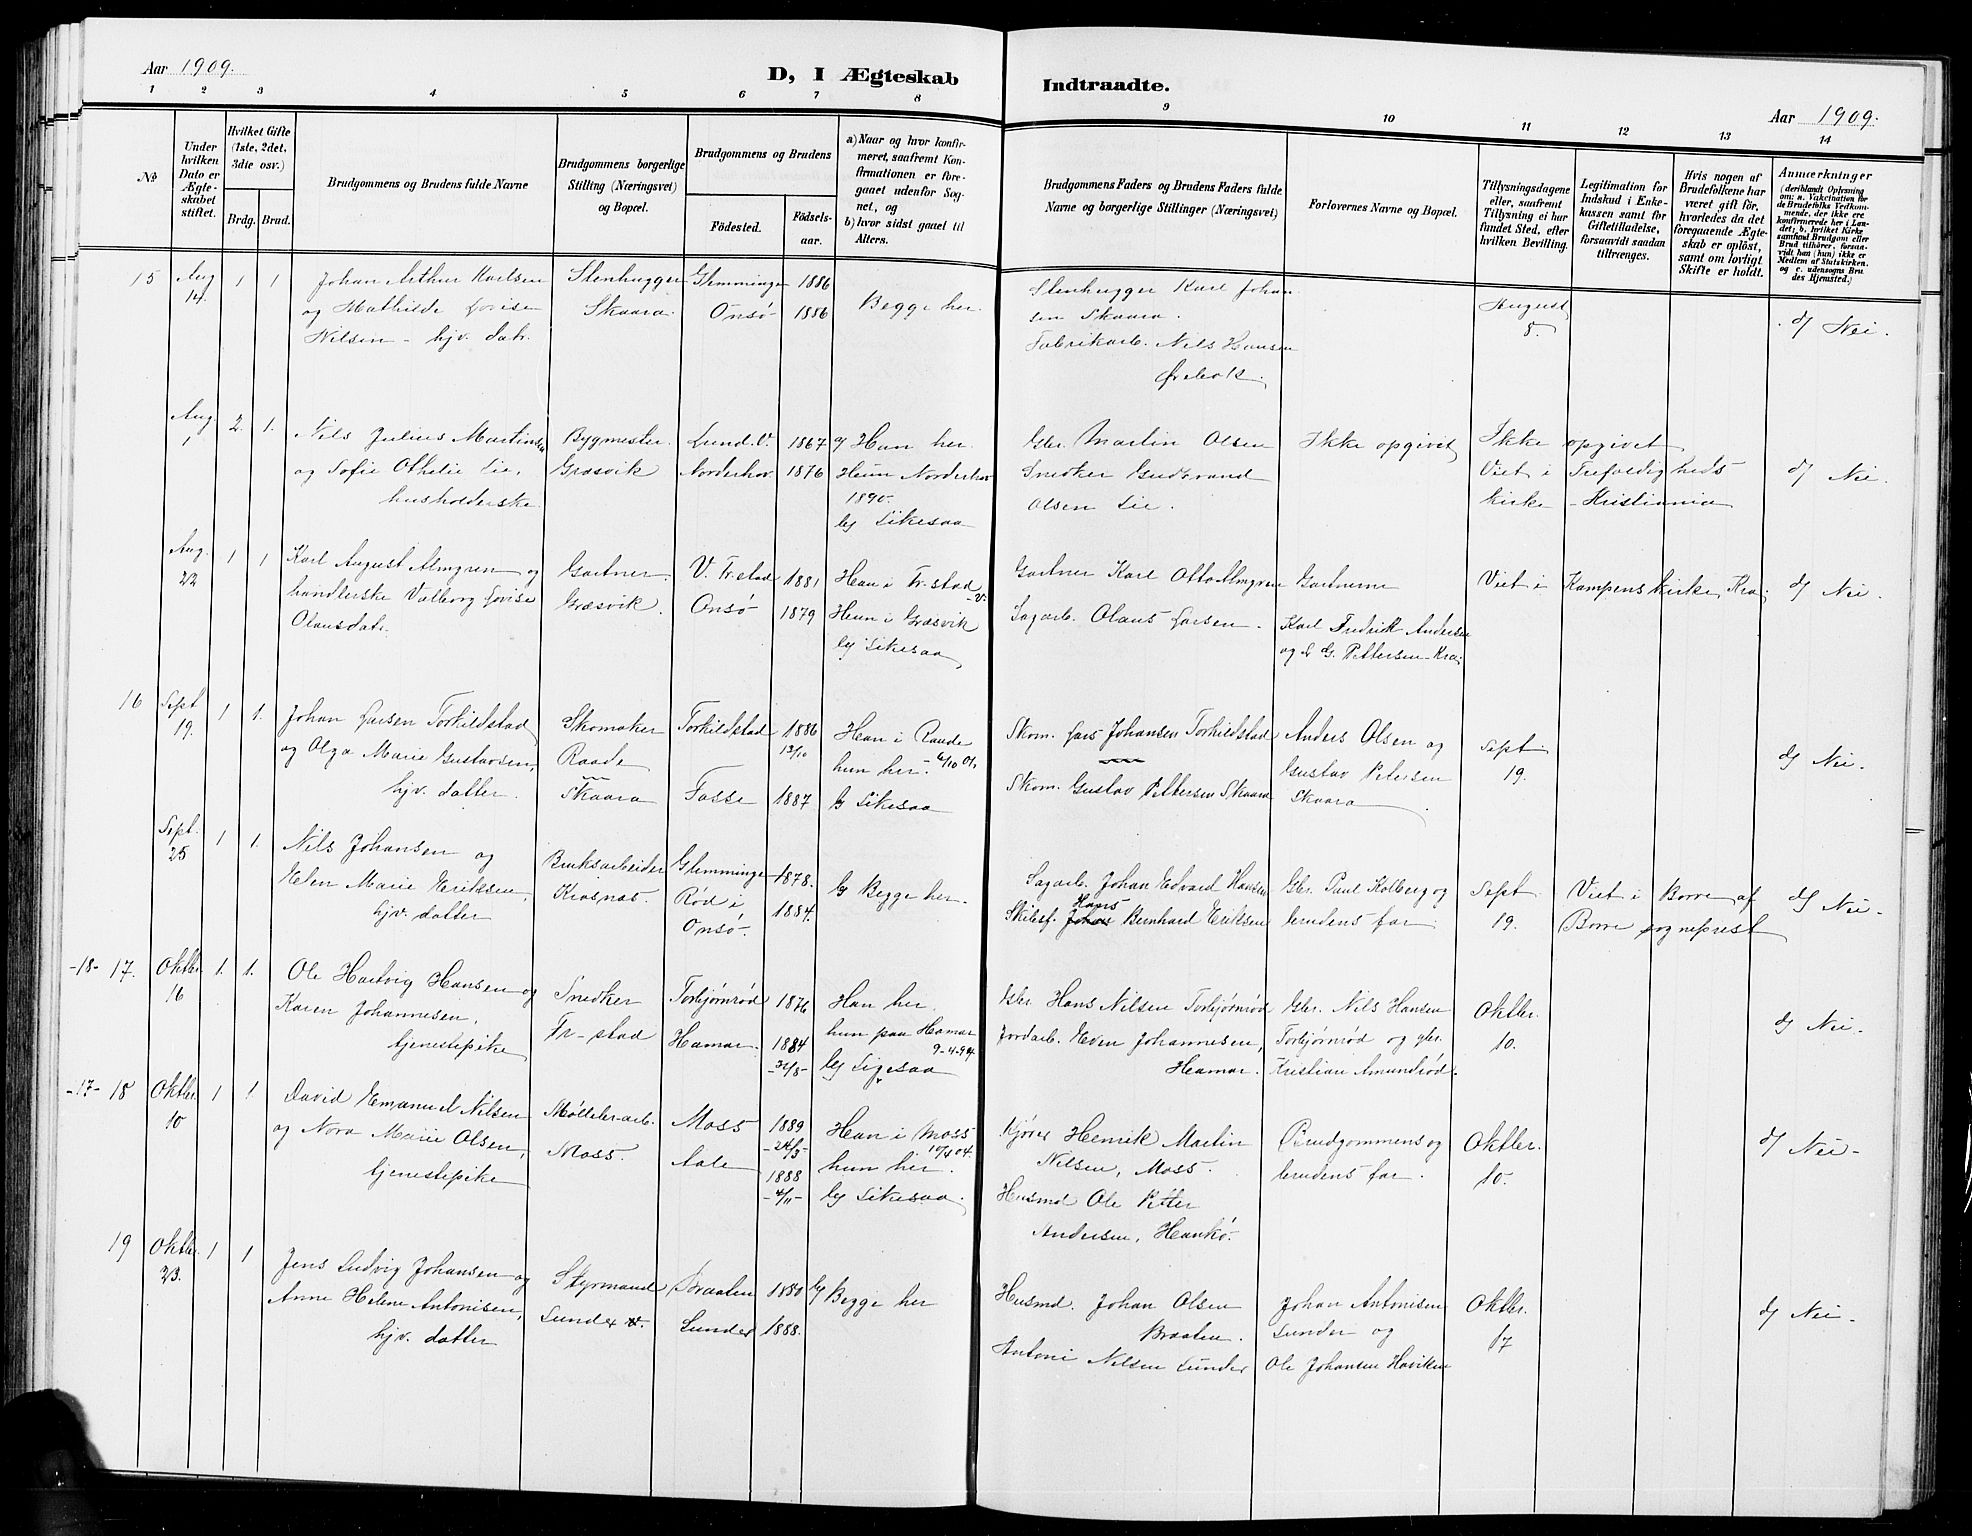 Aar 1909.
D, I Ægteskab
Indtraadte.
Aar 1909.
1 2 3 4 5 6 7 8 9 10 11 12 13 14
№
Under hvilken Dato er Ægteskabet stiftet.
Hvilket Gifte (1ste, 2det, 3die osv.)
Brdg. Brud.
Brudgommens og Brudens fulde Navne
Brudgommens borgerlige Stilling (Næringsvei) og Bopæl.
Brudgommens og Brudens
Fødested.
Fødselsaar.
a) Naar og hvor konfirmeret, saafremt Konfirmationen er foregaaet udenfor Sognet, og
b) hvor sidst gaaet til Alters.
Brudgommens Faders og Brudens Faders fulde Navne og borgerlige Stillinger (Næringsvei)
Forlovernes Navne og Bopæl.
Tillysningsdagene eller, saafremt Tillysning ei har fundet Sted, efter hvilken Bevilling.
Legitimation for Indskud i Enkekassen samt for Giftetilladelse, forsaavidt saadan tiltrænges.
Hvis nogen af Brudefolkene har været gift før, hvorledes da det foregaaende Ægteskab er opløst, samt om lovligt Skifte er holdt.
Anmærkninger
(deriblandt Oplysning om: a. Vakcination for de Brudefolks Vedkommende, der ikke ere konfirmerede her i Landet; b. hvilket Kirkesamfund Brudgom eller Brud tilhører, forsaavidt han (hun) ikke er Medlem af Statskirken, og c. udensogns Brudes Hjemsted.)
15 Aug 14. 1 1
Johan Arthur Karlsen
og Mathilde Lovise
Nilsen - hjv. datr.
Stenhugger
Skaara.
Glemminge 1886
Onsø 1886
Begge her.
Stenhugger Karl Johan
sen Skaara.
Fabrikarb. Nils Hansen
Ørebek.
August
8.
d/ Nei.
Aug. 1 2. 1.
Nils Julius Martinsen
og Sofie Othelie Lie,
husholderske.
Bygmester.
Græsvik
Lund. V. 1867
Norderhov. 1876
a/ Han her.
Heun Norderhov
1890.
b/ Likesaa
Gbr. Martin Olsen
Snedker Gudbrand
Olsen Lie.
Ikke opgivet
Ikke opgivet
Viet i Trefoldigheds
kirke - Kristiania
d/ Nei.
Aug. 22 1 1
Karl August Almgren og
handlerske Valborg Lovise
Olausdatr.
Gartner.
Græsvik.
V. Fr.stad 1881
Onsø 1879
Han i Fr.stad
-v.
Hun i Græsvik
b/ Likesaa,
Gartner Karl Otto Almgren
Sagarb. Olaus Larsen.
Gartnerne
Karl Fredrik Andersen
og L G. Pettersen - Kra.
Viet i Kampens kirke, Kra.
d/ Nei.
16 Sept 19. 1 1.
Johan Larsen Torkildstad
og Olga Marie Gustavsen,
hjv. datter.
Skomaker
Raade
Skaara
Torkildstad 1886
13/10
Fosse 1887
Han i Raade
6/10 01.
hun her.
b/ Likesaa
Skom. Lars Johansen Torkildstad
Skom. Gustav Pettersen Skaara
Anders Olsen og
Gustav Petersen
Skaara
Sept
19.
d/ Nei.
Sept. 25 1 1.
Nils Johansen og
Elen Marie Eriksen,
hjv. datter
Bruksarbeider
Krosnæs.
Glemminge 1878.
Rød i
Onsø. 1884.
b/ Begge her.
Sagarb. Johan Edvard Hansen
Hans
Skibsf. Johan Bernhard Eriksen
Gbr. Paul Kolberg og
brudens far.
Sept.
19.
Viet i Borre af
Borre sogneprest
d/ Nei.
-18- 17. Oktbr. 16 1. 1.
Ole Hartvig Hansen og
Karen Johannesen,
tjenestepike
Snedker
Fr-stad
Torbjørnrød 1876
Hamar. 1884
Han her.
hun paa Hamar
9-4-99.
b/ Ligesaa
Gbr. Hans Nilsen Torbjørnrød
Jordarb. Even Johannesen,
Hamar.
Gbr. Nils Hansen
Torbjørnrød og gbr.
Kristian Amundrød.
Oktbr.
10.
d/ Nei.
-17- 18 Oktbr. 10 1 1.
David Emanuel Nilsen
og Nora Marie Olsen,
tjenestepike
Mølleriarb.
Moss.
Moss 1889
-24/3-
Aale 1888
-4/11-
Han i Moss
hun her.
b/ Likesaa.
Kjører Henrik Martin
Nilsen, Moss.
Husmd Ole Petter
Andersen, Hankø.
Brudgommens og
brudens far.
Oktbr.
10.
d/ Nei-
19 Oktbr. 23. 1 1
Jens Ludvig Johansen og
Anne Helene Antonisen,
hjv. datter
Styrmand
Lunder v.
Braaten
Lunder 1888.
b/ Begge her
Husmd. Johan Olsen
Braaten.
Antoni Nilsen Lunder
Johan Antonisen
Lunder og
Ole Johansen Haviken
Oktbr.
17
d/ Nei-